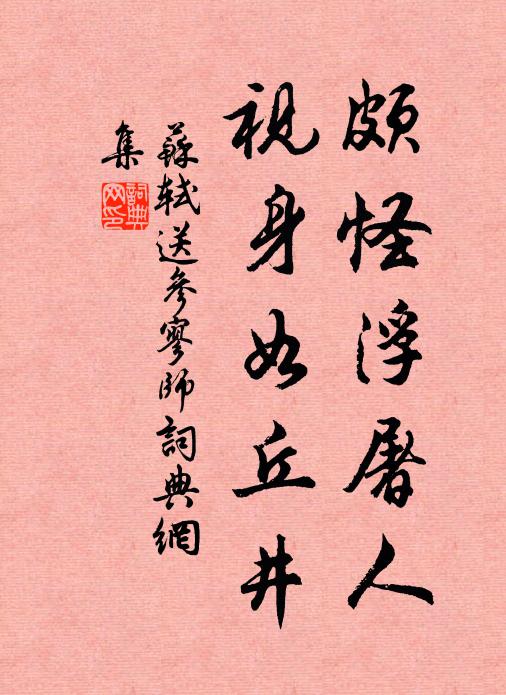 頗怪浮屠人
視身如丘井
蘇軾送參寥師詞典網
集
詞典
网印